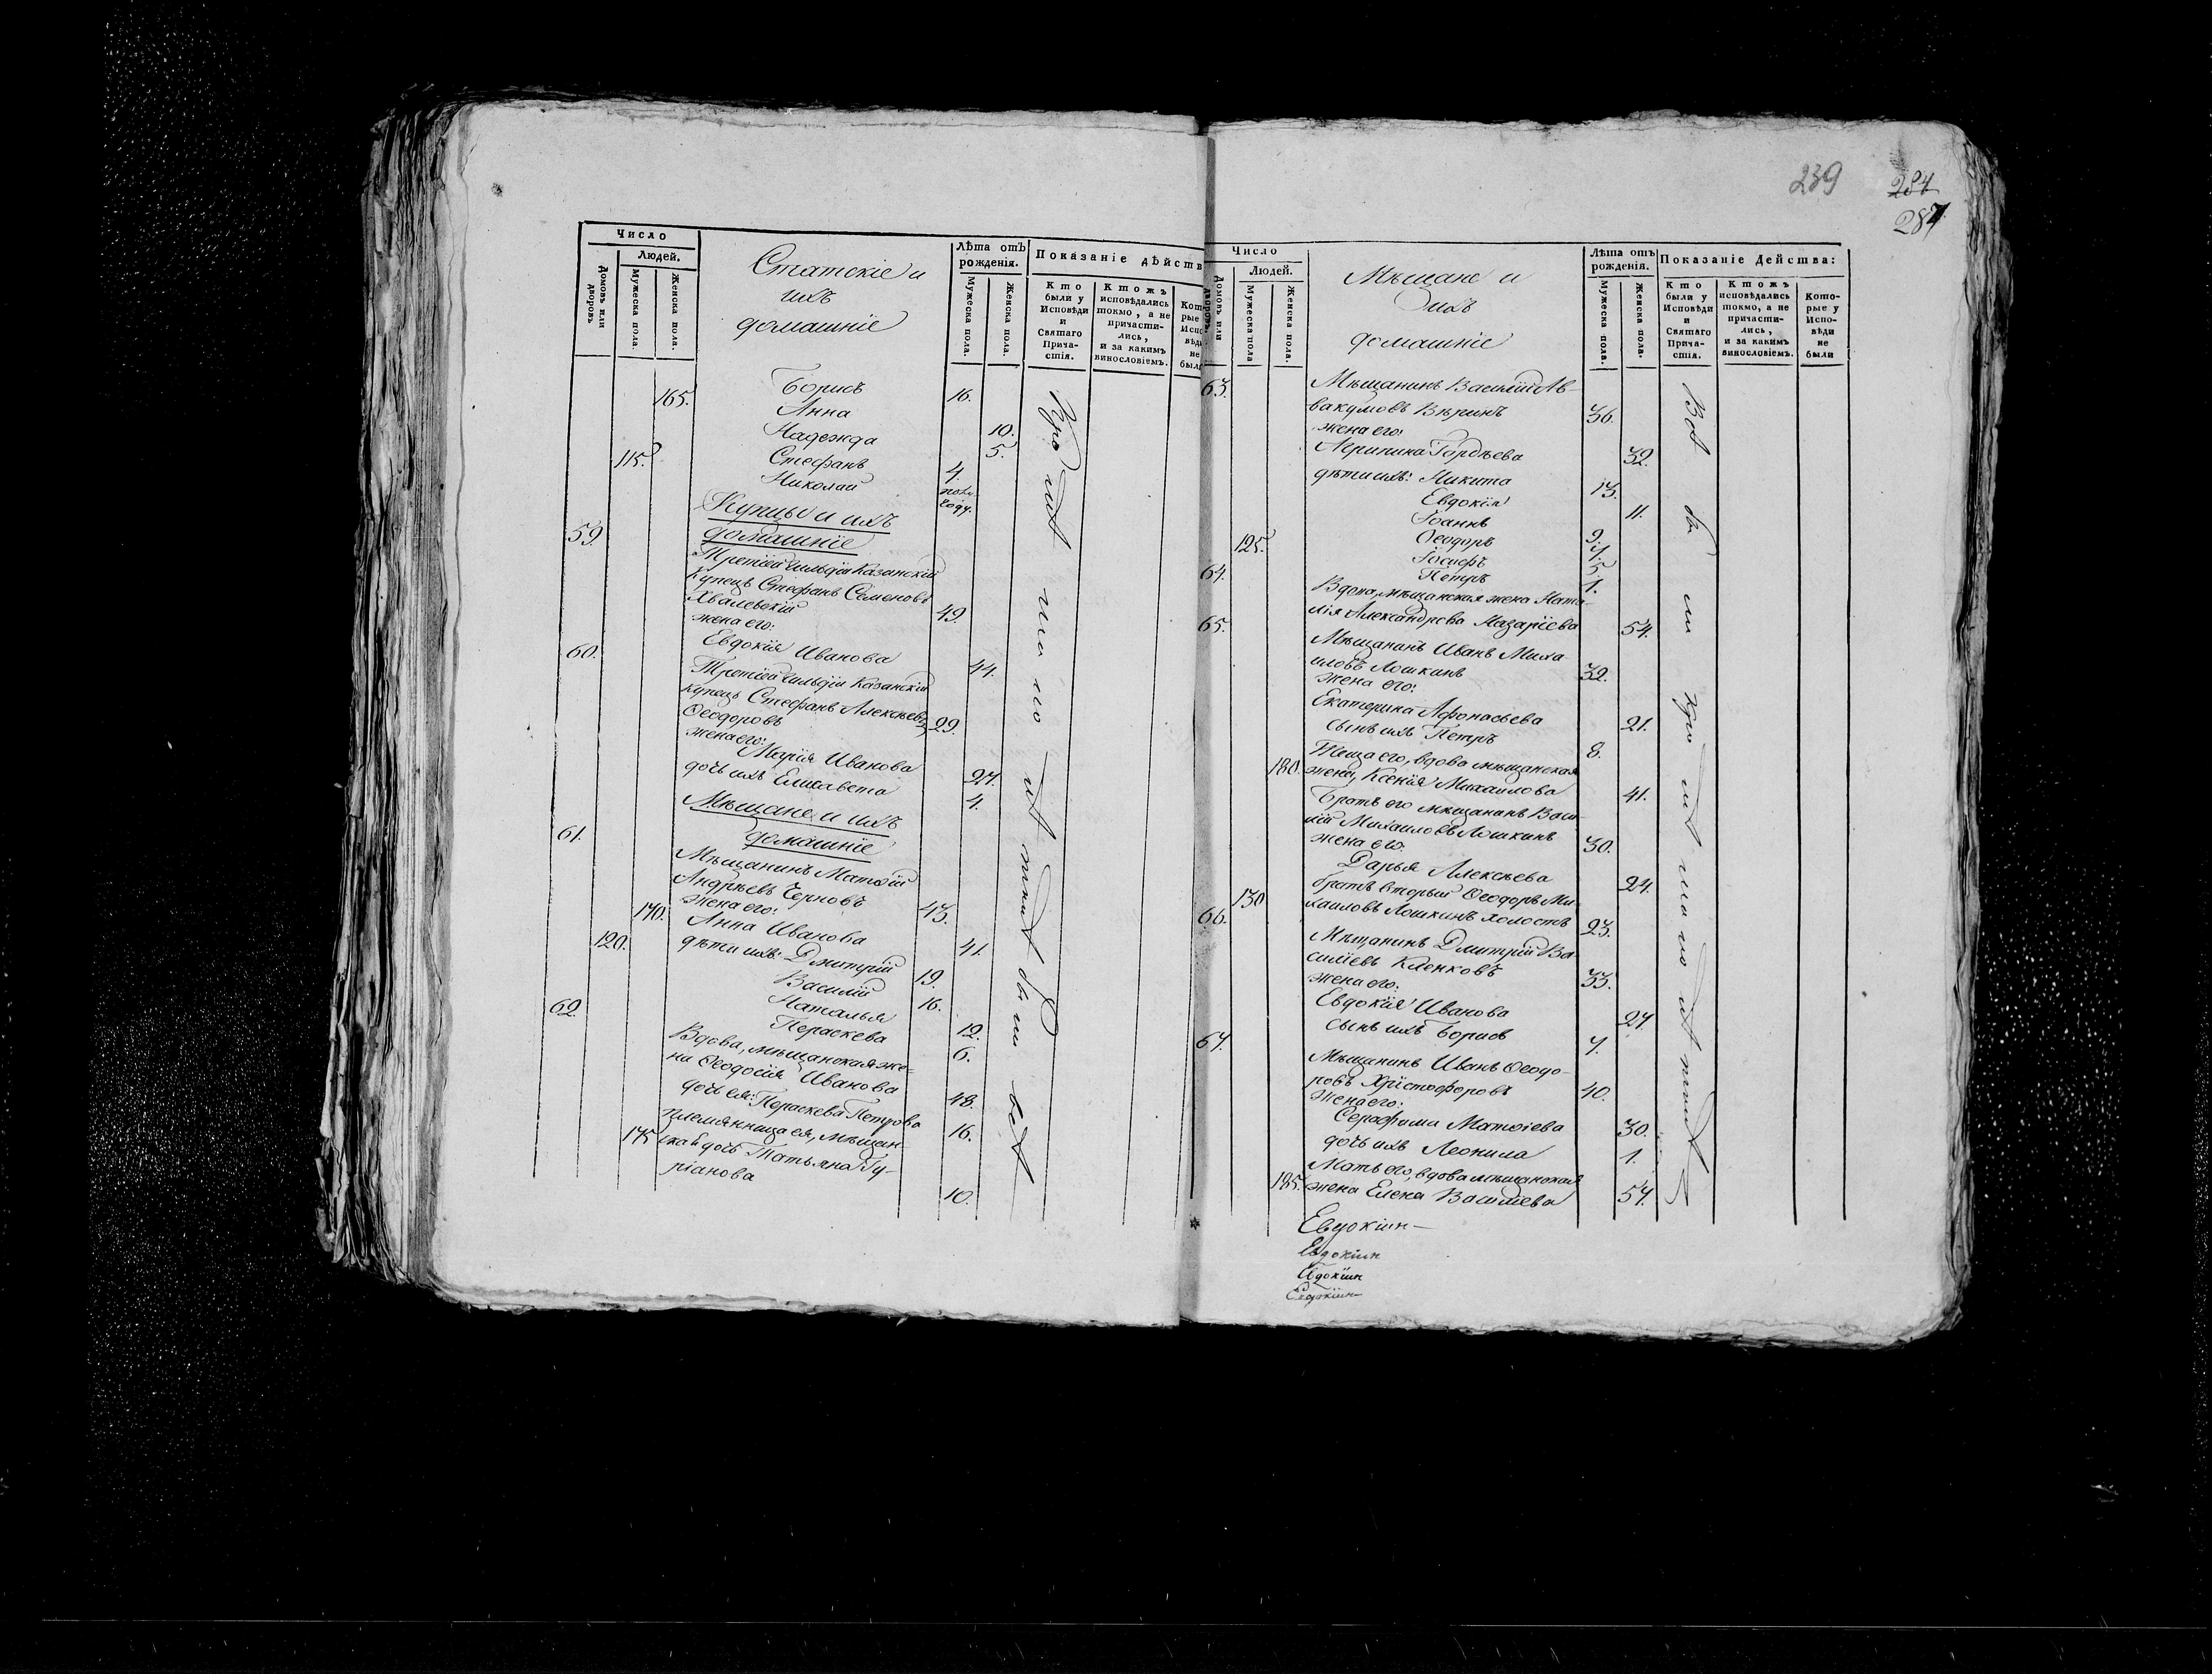 239
284
287
Число
Людей.
Домовъ или дворовъ
Мужеска пола.
Женска пола.
Статскіе и
ихъ
домашніе
Лѣта отъ рожденія.
Мужеска пола.
Женска пола.
Показаніе дѣйств
Кто были у Исповѣди и Святаго Причастія.
Ктожъ исповѣдались токмо, а не причастились, и за какимъ винословіемъ.
Которые у Исповѣди не были
Борисъ 16.
165. Анна 10.
Надежда 5.
115. Стефанъ 4.
Николай полу году.
Купцы и ихъ
домашніе
59. Третіей гильдіи Казанскій
Купецъ Стефанъ Семеновъ
Хвалевскій 49.
жена его:
Евдокія Иванова 44.
60. Третіей гильдіи Казанскій
купецъ Стефанъ Алексѣевъ
Ѳеодоровъ 29.
жена его:
Марія Иванова 27.
дочь ихъ Елисавета 4.
Мѣщане и ихъ
домашніе
61. Мѣщанинъ Матѳій
Андрѣевъ Черновъ 43.
жена его:
170. Анна Иванова 41.
дѣти ихъ: Дмитрій 19.
120. Василій 16.
Наталья 12.
Пераскева 6.
62. Вдова, мѣщанская же-
на Ѳеодосія Иванова 48.
дочь ея: Пераскева Петрова 16.
племянница ея, мѣщан-
175 ская дочь Татьяна Гу-
ріанова 10.
Число
Людей.
Домовъ или дворовъ.
Мужеска пола
Женска пола.
Мѣщане и
ихъ
домашніе
Лѣта отъ рожденія.
Мужеска пола.
Женска пола.
Показаніе Действа:
Кто были у Исповѣди и Святаго Причастія.
Ктожъ исповѣдались токмо, а не причастились, и за какимъ винословіемъ.
Которые у Исповѣди не были
63. Мѣщанинъ Василій Ав-
вакумовъ Вѣринъ 36.
жена его:
Агрипина Гордѣева 32.
дѣти ихъ: Никита 13.
Евдокія 11.
Іоаннъ 9.
125. Ѳеодоръ 7.
Іосифъ 5
Петръ 1.
64. Вдова, мѣщанская жена Ната-
лія Александрова Назаріева 54.
65. Мѣщанинъ Иванъ Миха
иловъ Лошкинъ 32.
жена его:
Екатерина Афонасьева 21.
сынъ ихъ Петръ 8.
Теща его, вдова мѣщанская
180. жена, Ксенія Михаилова 41.
Братъ его мѣщанинъ Васи-
лій Михаиловъ Лошкинъ 30.
жена его:
Дарья Алексѣева 24.
братъ вторый Ѳеодоръ Ми-
130 хаиловъ Лошкинъ холостъ 23.
66. Мѣщанинъ Дмитрій Ва
силіевъ Кленковъ 33.
жена его:
Евдокія Иванова 27
сынъ ихъ Борисъ 7.
67. Мѣщанинъ Иванъ Ѳеодо-
ровъ Христофоровъ 40.
Жена его:
Серафима Матѳіева 30.
дочь ихъ Леонила 1.
Мать его, вдова мѣщанская
185. жена Елена Василіева 57.
Евдокіин
Евдокіин
Евдокіин
Евдокіин